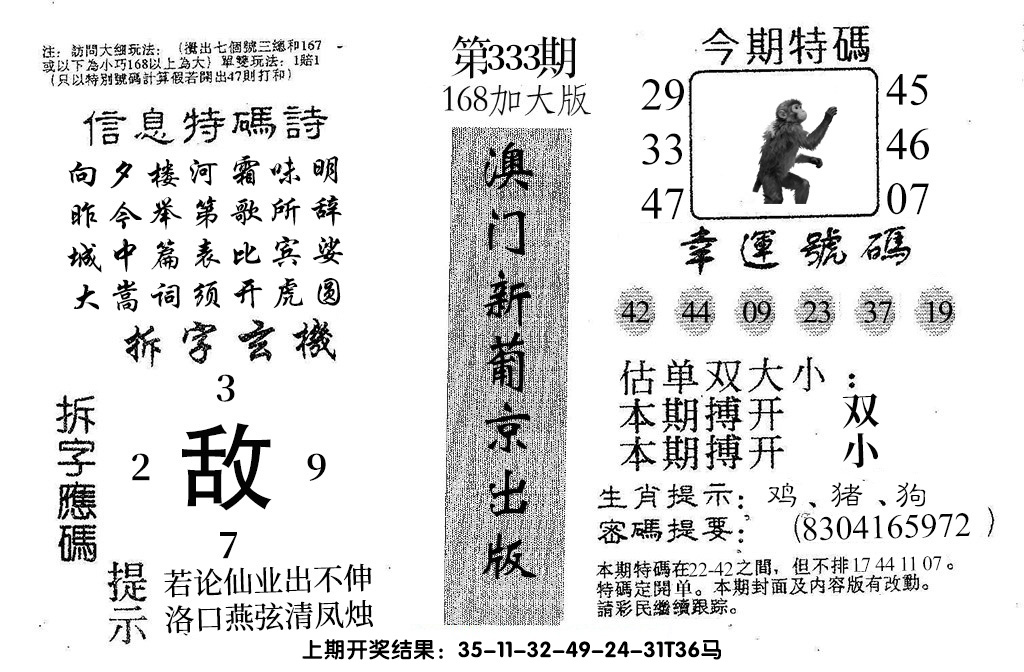 注：訪問大细玩法：（攪出七個號三總和167
或以下為小巧168以上為大）單雙玩法：1賠1
（只以特別號碼計算假若開出47則打和）
信息特碼詩
向夕楼河霜味明
昨今举第歌所辞
城中篇表比宾娑
大嵩词须开虎圆
拆字玄機
拆字應碼
3
2 敌 9
7
提示
若论仙业出不伸
洛口燕弦清凤烛
第333期
168加大版
澳门新葡京出版
今期特碼
29 45
33 46
47 07
幸運號碼
42 44 09 23 37 19
估单双大小：
本期搏开 双
本期搏开 小
生肖提示：鸡、猪、狗
密碼提要：（8304165972）
本期特碼在22-42之間，但不排17 44 11 07。
特碼定開单。本期封面及内容版有改動。
請彩民繼續跟踪。
上期开奖结果：35-11-32-49-24-31T36马